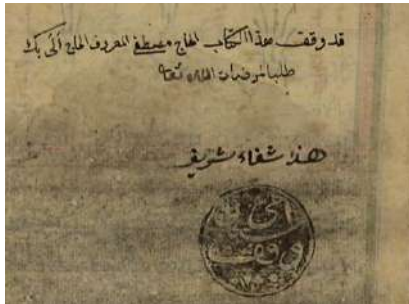 قد وقف هذا الكتاب الحاج مصطفى المعروف الحاج بك
طلبا لمرضات الله تعا
هذا شفاء شريف